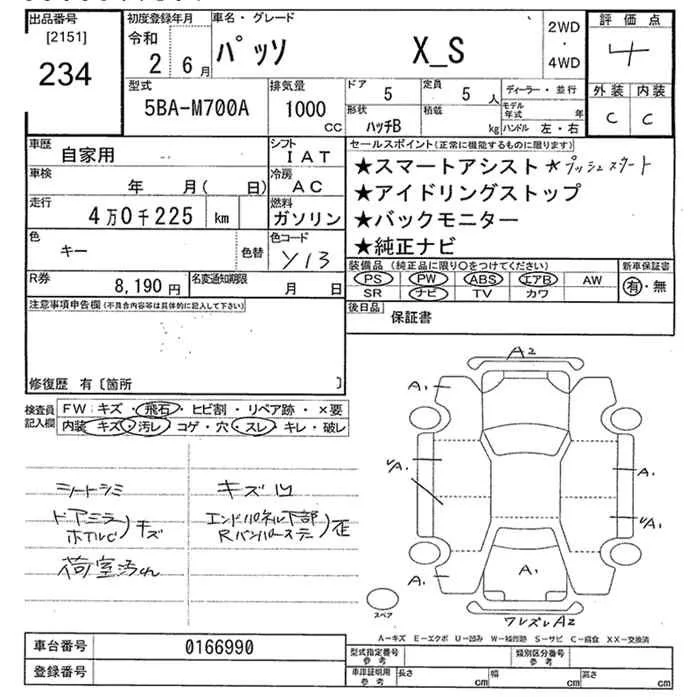 出品番号
[2151]
234
初度登録年月
令和
2 6月
車名・グレード
パッソ X_S
2WD
・
4WD
評価点
4
外装 内装
C C
型式
5BA-M700A
排気量
1000
CC
ドア 5
定員 5 人
形状 ハッチB
積載 kg
ディーラー・並行
モデル年式 年
ハンドル 左・右
車歴 自家用
シフト IAT
車検 年 月( 日)
冷房 AC
走行 4万0千225 km
燃料 ガソリン
色 キー
色替
色コード Y13
R券 8,190円
名変通知期限 月 日
セールスポイント(正常に機能するものに限ります)
★スマートアシスト ★プッシュスタート
★アイドリングストップ
★バックモニター
★純正ナビ
装備品 (純正品に限り○をつけてください)
PS PW ABS エアB AW
SR ナビ TV カワ
新車保証書
有・無
後日品 保証書
注意事項申告欄(不具合内容等は具体的に記入して下さい)
修復歴 有〔箇所 〕
検査員記入欄
FW:キズ・飛石・ヒビ割・リペア跡・×要
内装 キズ・汚レ・コゲ・穴・スレ・キレ・破レ
シートシミ
ドアミラー
ホイルC)キズ
荷室汚れ
キズ凹
エンドパネル下部
Rバンパーステー)歪
A2
A1
A1
A1
A1
A1
A1
A1
ワレズレA2
スペア
A-キズ E-エクボ U-凹み W-補修跡 S-サビ C-腐食 XX-交換済
車台番号 0166990
登録番号
型式指定番号 参考
類別区分番号 参考
車庫証明用 参考
長さ cm
幅 cm
高さ cm